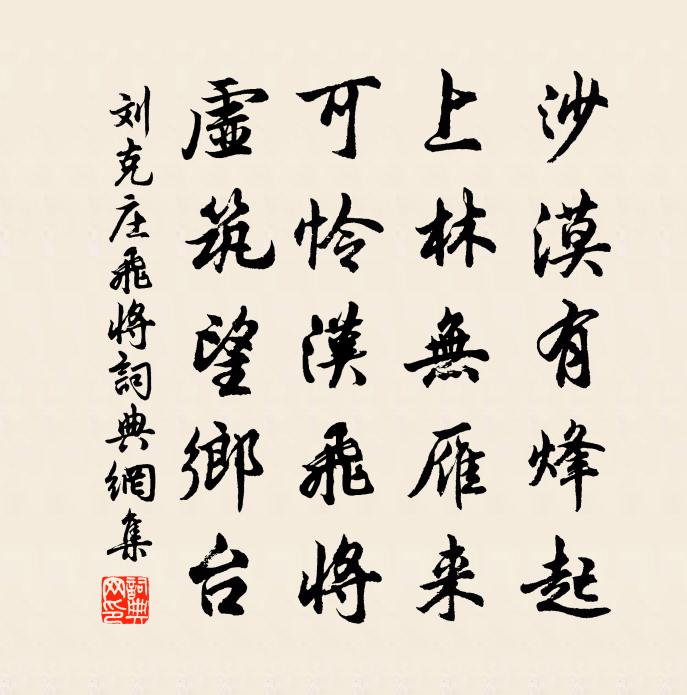 沙漠有烽起
上林無雁来
可怜漢飛将
虛筑望鄉台
刘克庄飛将詞典網集
詞典網印